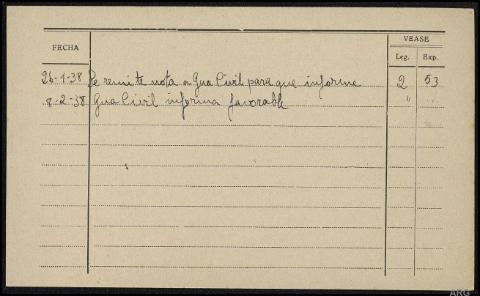 FECHA
VEASE
Leg. Exp.
26-1-38 Se remite nota a Gua Civil para que informe 2 53
8-2-38 Gua Civil informa favorable " "
ARG